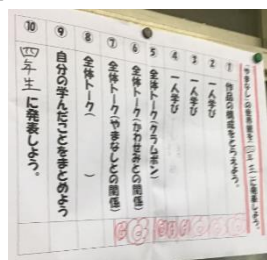 「やまなし」の世界観を（四年生）に発表しよう。
① 作品の構成をとらえよう。
② 一人学び
③ 一人学び
④ 一人学び
⑤ 全体トーク(クラムボン)
⑥ 全体トーク(かわせみとの関係)
⑦ 全体トーク(やまなしとの関係)
⑧ 全体トーク(　　　)
⑨ 自分の学んだことをまとめよう
⑩ 四年生に発表しよう。